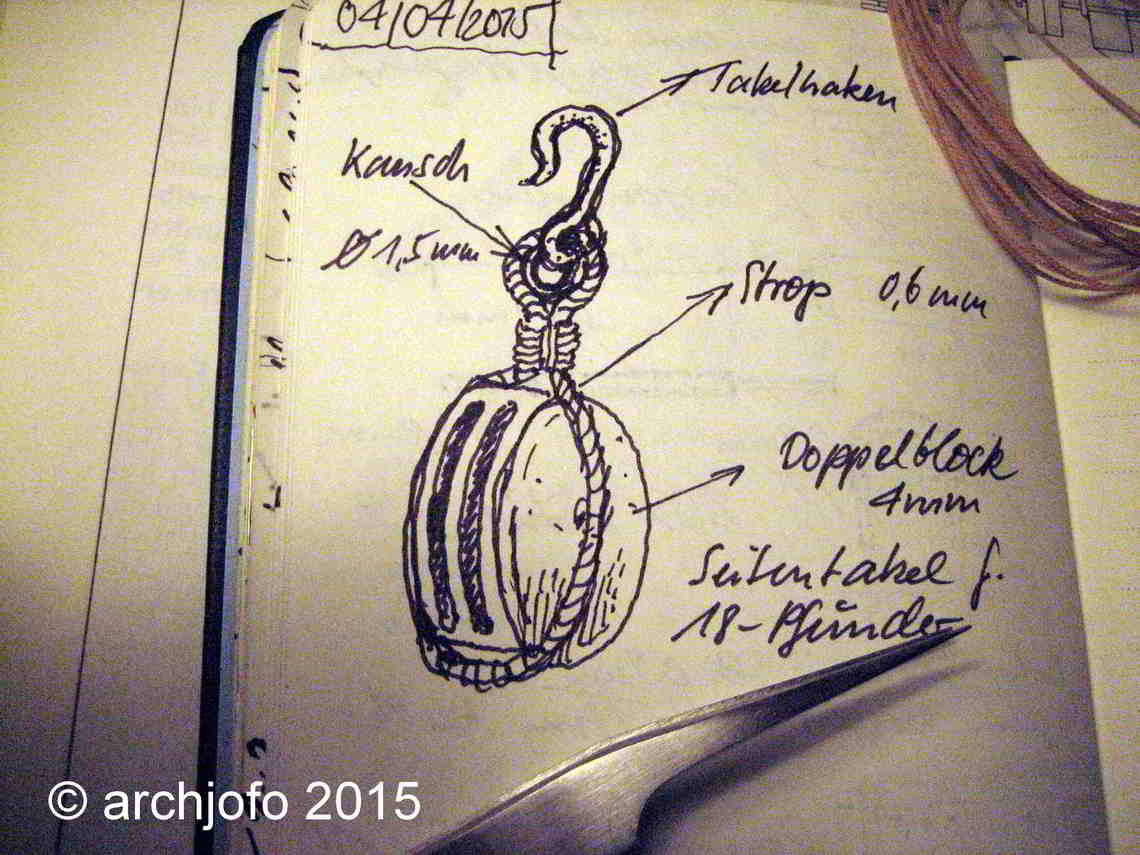 04/04/2015
Takelhaken
Kausch
Ø 1,5mm
Strop 0,6mm
Doppelblock
4mm
Seitentakel f.
18-Pfünder
© archjofo 2015